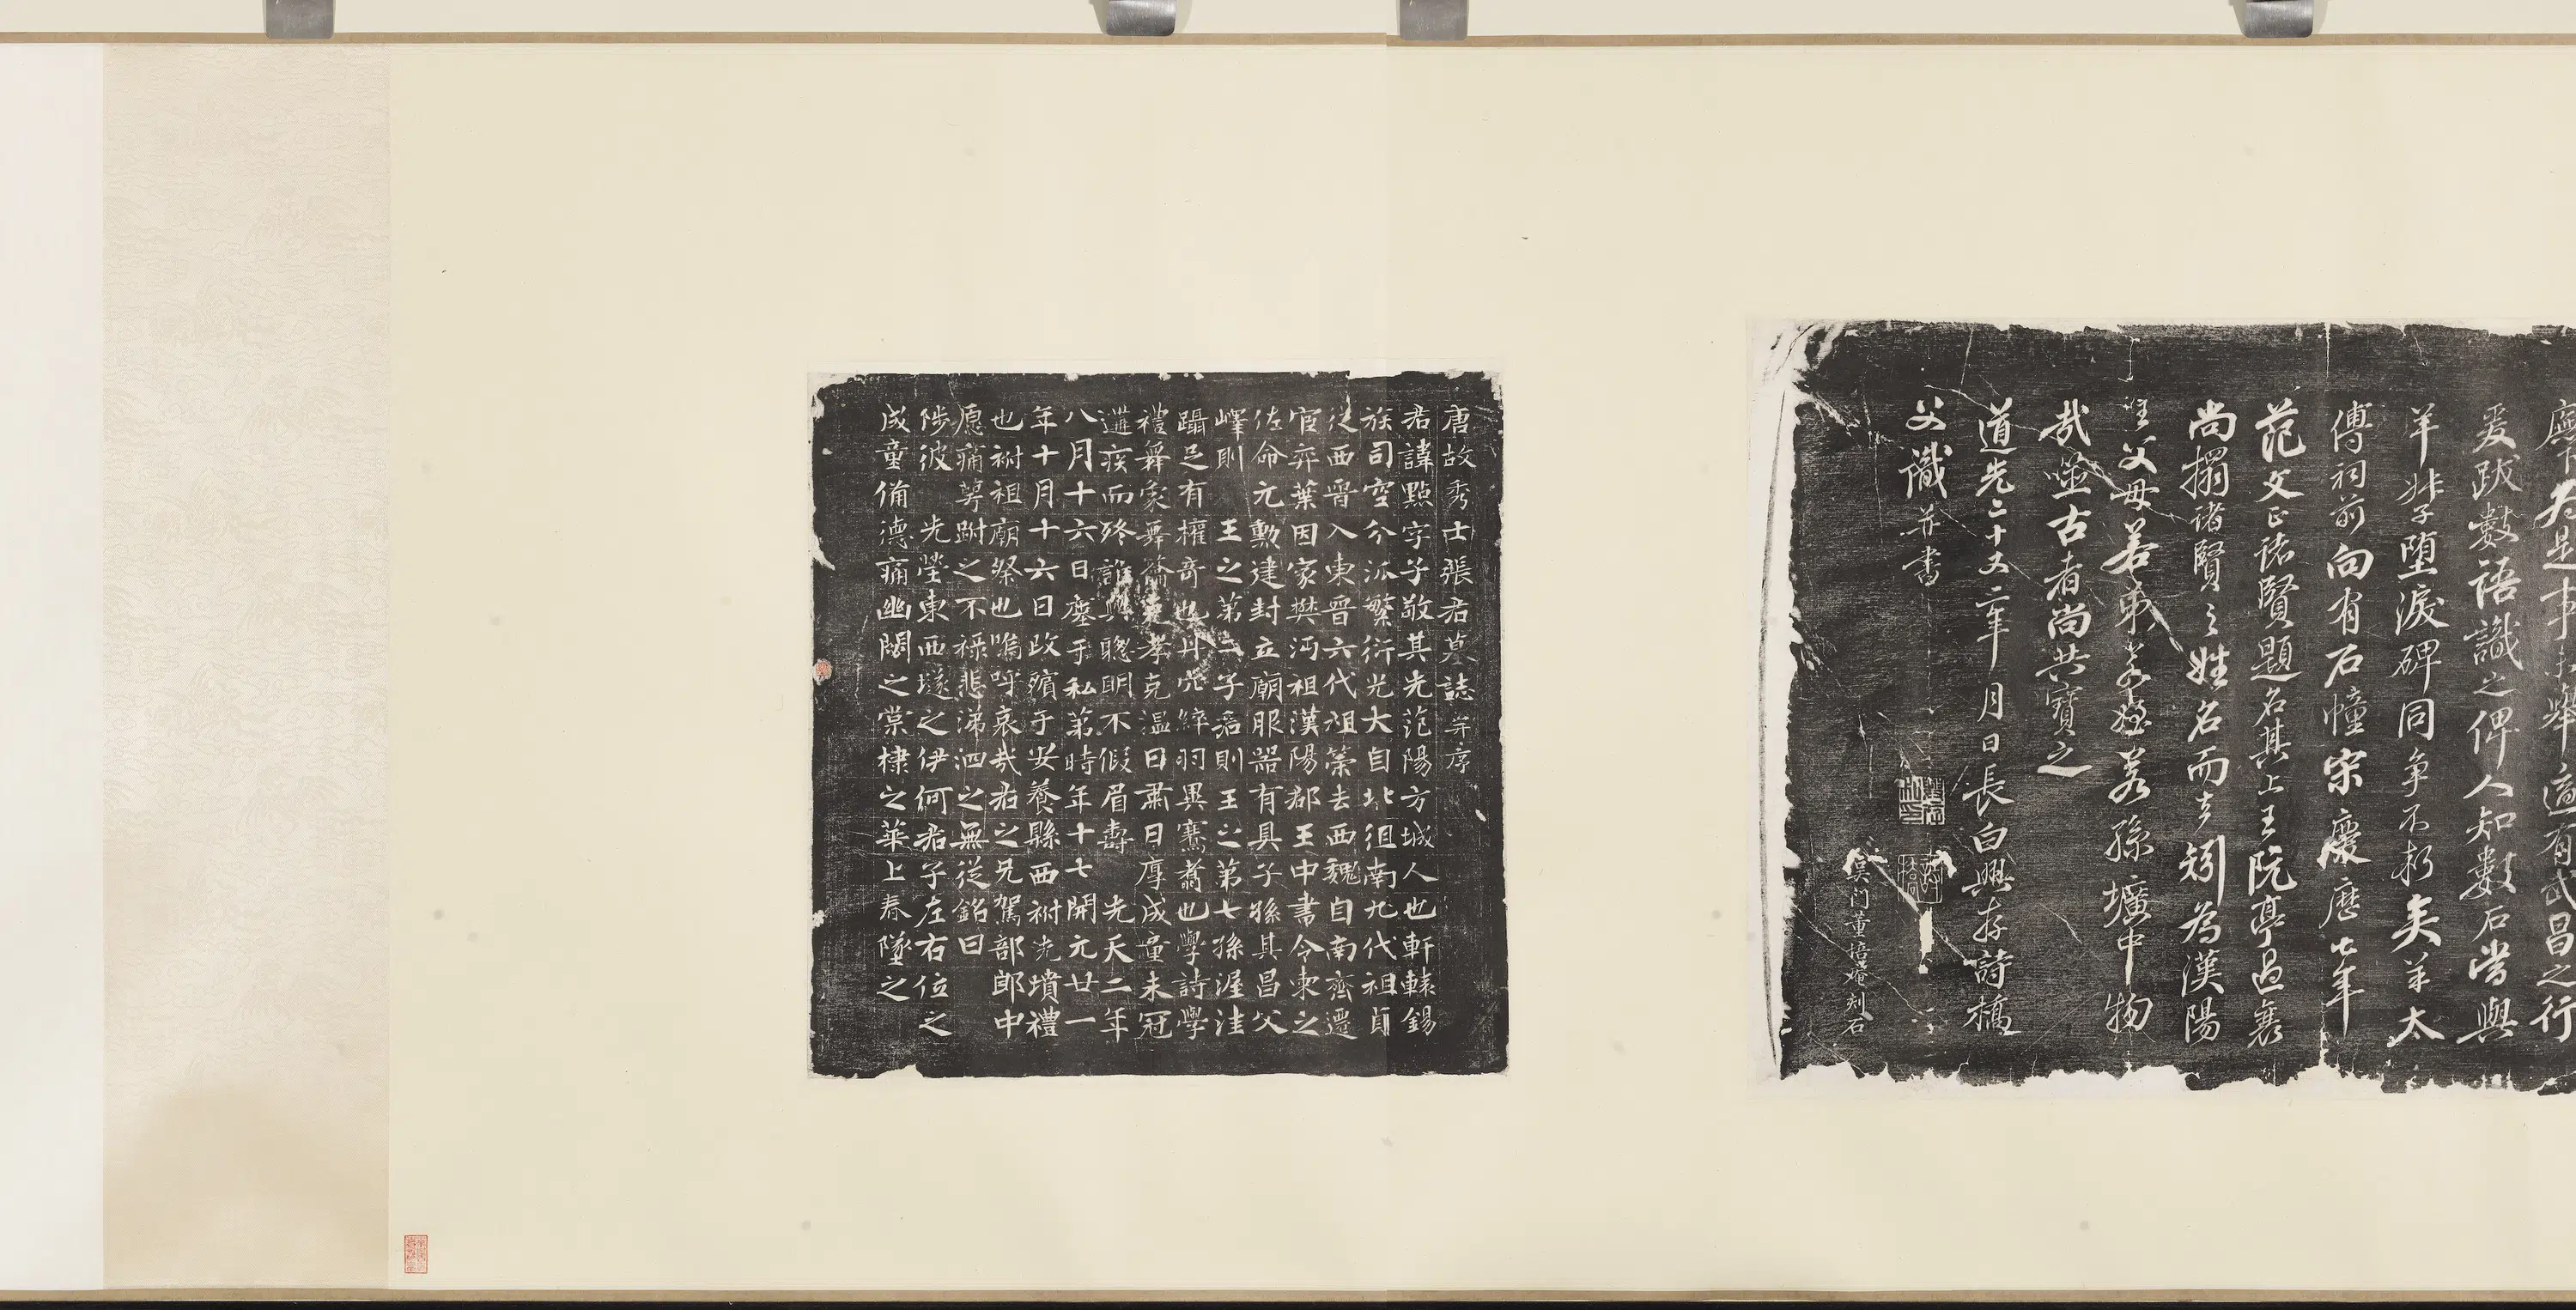 為是事未舉適有武昌之行
爰跋數語識之俾人知數石當與
羊叔子墮淚碑同爭不朽矣羊太
傅祠前向有石幢宋慶歷七年
范文正諸賢題名其上王阮亭過襄
尚搨諸賢之姓名而去矧為漢陽
王父母若弟若姪若孫壙中物
哉噫古者尚共寶之
道光二十又二年 月日長白興存詩橋
父識并書
吳門董 庵刻石
唐故秀士張君墓誌并序
君諱點字子敬其先范陽方城人也軒轅錫
族司空分派繁衍光大自北徂南九代祖貞
從西晉入東晉六代祖策去西魏自南齊遷
宦弈葉因家樊沔祖漢陽郡王中書令柬之
佐命元勳建封立廟服器有具子孫其昌父
嶧則 王之第二子君則王之第七孫渥洼
躡足有權奇也丹穴綷羽異騫翥也學詩學
禮舞象舞籥克孝克溫曰肅曰厚成童未冠
遘疾而終誰與聰明不假眉壽 先天二年
八月十六日塵于私第時年十七開元廿一
年十月十六日改殯于安養縣西祔先墳禮
也祔祖廟祭也嗚呼哀哉君之兄駕部郎中
愿痛萼跗之不祿悲涕泗之無從銘曰
陟彼 先塋東西墜之伊何君子左右位之
成童備德痛幽閟之棠棣之華上春墜之